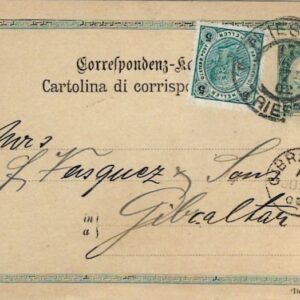 Correspondenz-K
Cartolina di corrispo
5 HELLER 5
TRIEST
Mrs
J. Vasquez & Sons
in
a
Gibraltar
GIBR